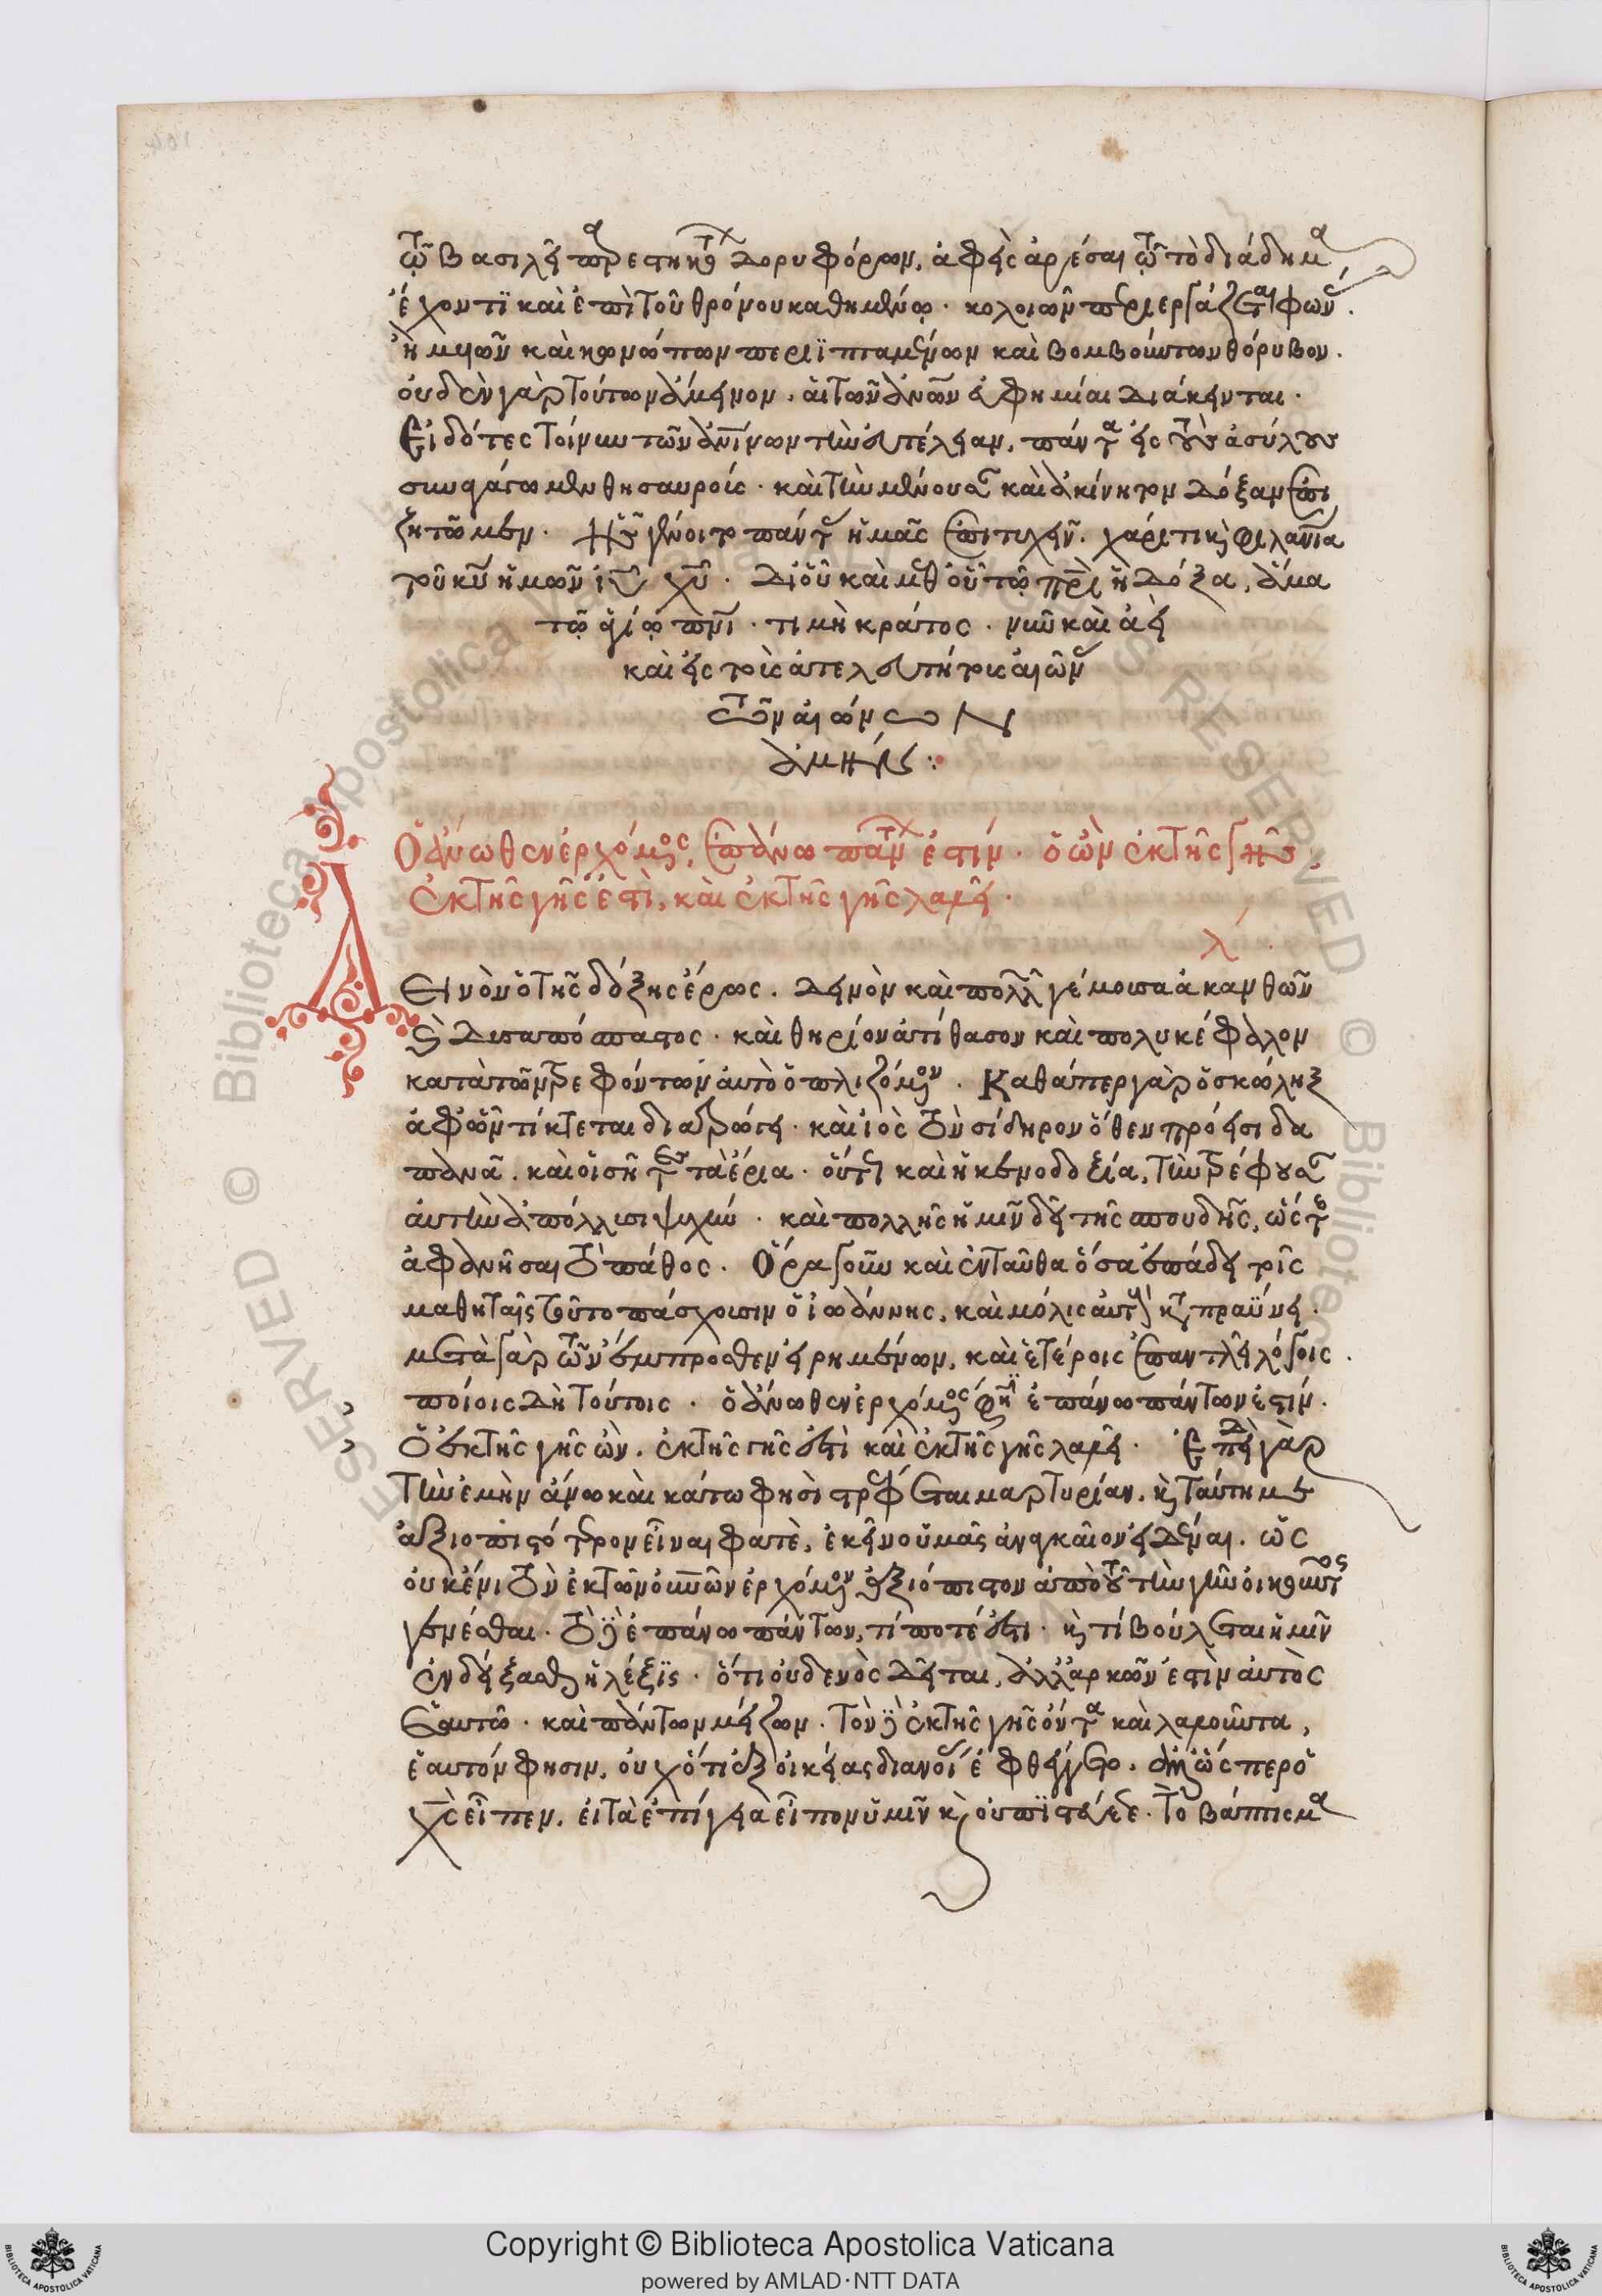 τῷ βασιλεῖ παρεστηκότων δορυφόρων, ἀφεὶς ἀρέσαι τῷ τὸ διάδημα
ἔχοντι καὶ ἐπὶ τοῦ θρόνου καθημένῳ. κολοιῶν περιεργάζεται φωνῆς.
ἢ μυιῶν καὶ κωνώπων περιϊπταμένων καὶ βομβούντων θόρυβον.
οὐδὲν γὰρ τούτων ἄμεινον, αἱ τῶν ἀνων εὐφημίαι διάκεινται.
Εἰδότες τοίνυν τῶν ἀνίνων τὴν εὐτέλειαν, πάντα εἰς τοὺς ἀσύλους
συναγάγωμεν θησαυροὺς. καὶ τὴν μένουσαν καὶ ἀκίνητον δόξαν ἐπι
ζητῶμεν. Ἧς γένοιτο πάντας ἡμᾶς ἐπιτυχεῖν. χάριτι καὶ φιλανία
τοῦ κυ ἡμῶν ιυ χυ. Δι' οὗ καὶ μεθ' οὗ τῷ πρι ἡ δόξα, ἅμα
τῷ ἁγίῳ πνι. τιμὴ κράτος. νῦν καὶ ἀεὶ
καὶ εἰς τοὺς ἀτελευτήτους αἰῶνας
τῶν αἰώνων
ἀμήν :
Ὁ ἄνωθεν ἐρχόμενος, ἐπάνω πάντων ἐστίν. ὁ ὢν ἐκ τῆς γῆς,
ἐκ τῆς γῆς ἐστὶ, καὶ ἐκ τῆς γῆς λαλεῖ.
λ.
Δεινὸν ὁ τῆς δόξης ἔρως. Δεινὸν καὶ πολλῶν γέμουσα ἀκανθῶν
καὶ δυσαπόσπαστος. καὶ θηρίον ἀτίθασον καὶ πολυκέφαλον
κατὰ τῶν τρεφόντων αὐτὸ ὁπλιζόμενον. Καθάπερ γὰρ ὁ σκώληξ
ἀφ' ὧν τίκτεται διατρώγει. καὶ ἰὸς τὸν σίδηρον ὅθεν πρόεισι δα
πανᾶ. καὶ οἱ σῆτες τὰ ἔρια. οὕτω καὶ ἡ κενοδοξία, τὴν τρέφουσαν
αὐτὴν ἀπόλλυσι ψυχήν. καὶ πολλῆς ἡμῖν δεῖ τῆς σπουδῆς, ὥστε
ἀφανῆσαι τὸ πάθος. Ὅρα γοῦν καὶ ἐνταῦθα ὅσα ἐπάδει τοῖς
μαθηταῖς τοῦτο πάσχουσιν ὁ ἰωάννης, καὶ μόλις αὐτοὺς καταπραΰνει.
μετὰ γὰρ τῶν ἔμπροσθεν εἰρημένων, καὶ ἑτέροις ἐπαντλεῖ λόγοις.
ποίοις δὴ τούτοις. ὁ ἄνωθεν ἐρχόμενος φησὶν ἐπάνω πάντων ἐστίν.
Ὁ ἐκ τῆς γῆς ὢν. ἐκ τῆς γῆς ἐστὶ καὶ ἐκ τῆς γῆς λαλεῖ. Ἐπειδὴ γὰρ
τὴν ἐμὴν ἄνω καὶ κάτω φησὶ στρέφεται μαρτυρίαν. καὶ ταύτῃ με
ἀξιοπιστότερον εἶναι φατὲ, ἐκεῖνο ὑμᾶς ἀναγκαῖον εἰδέναι. ὡς
οὐκ ἔνι τὸν ἐκ τῶν οὐνῶν ἐρχόμενον ἀξιόπιστον ἀπὸ τοῦ τὴν γῆν οἰκοῦντος
γενέσθαι. Τὸ δὲ ἐπάνω πάντων, τί ποτέ ἐστι. καὶ τί βούλεται ἡμῖν
ἐνδείξασθαι ἡ λέξις. ὅτι οὐδενὸς δεῖται, ἀλλ' ἀρκῶν ἐστὶν αὐτὸς
ἑαυτῷ. καὶ πάντων μείζων. Τὸν δὲ ἐκ τῆς γῆς ὄντα καὶ λαλοῦντα,
ἑαυτόν φησιν, οὐχ ὅτι ἐξ οἰκείας διανοίας ἐφθέγγετο. ἀλλ' ὥσπερ ὁ
χς εἶπεν. εἰ τὰ ἐπίγεια εἶπον ὑμῖν καὶ οὐ πιστεύετε. Τὸ βάπτισμα